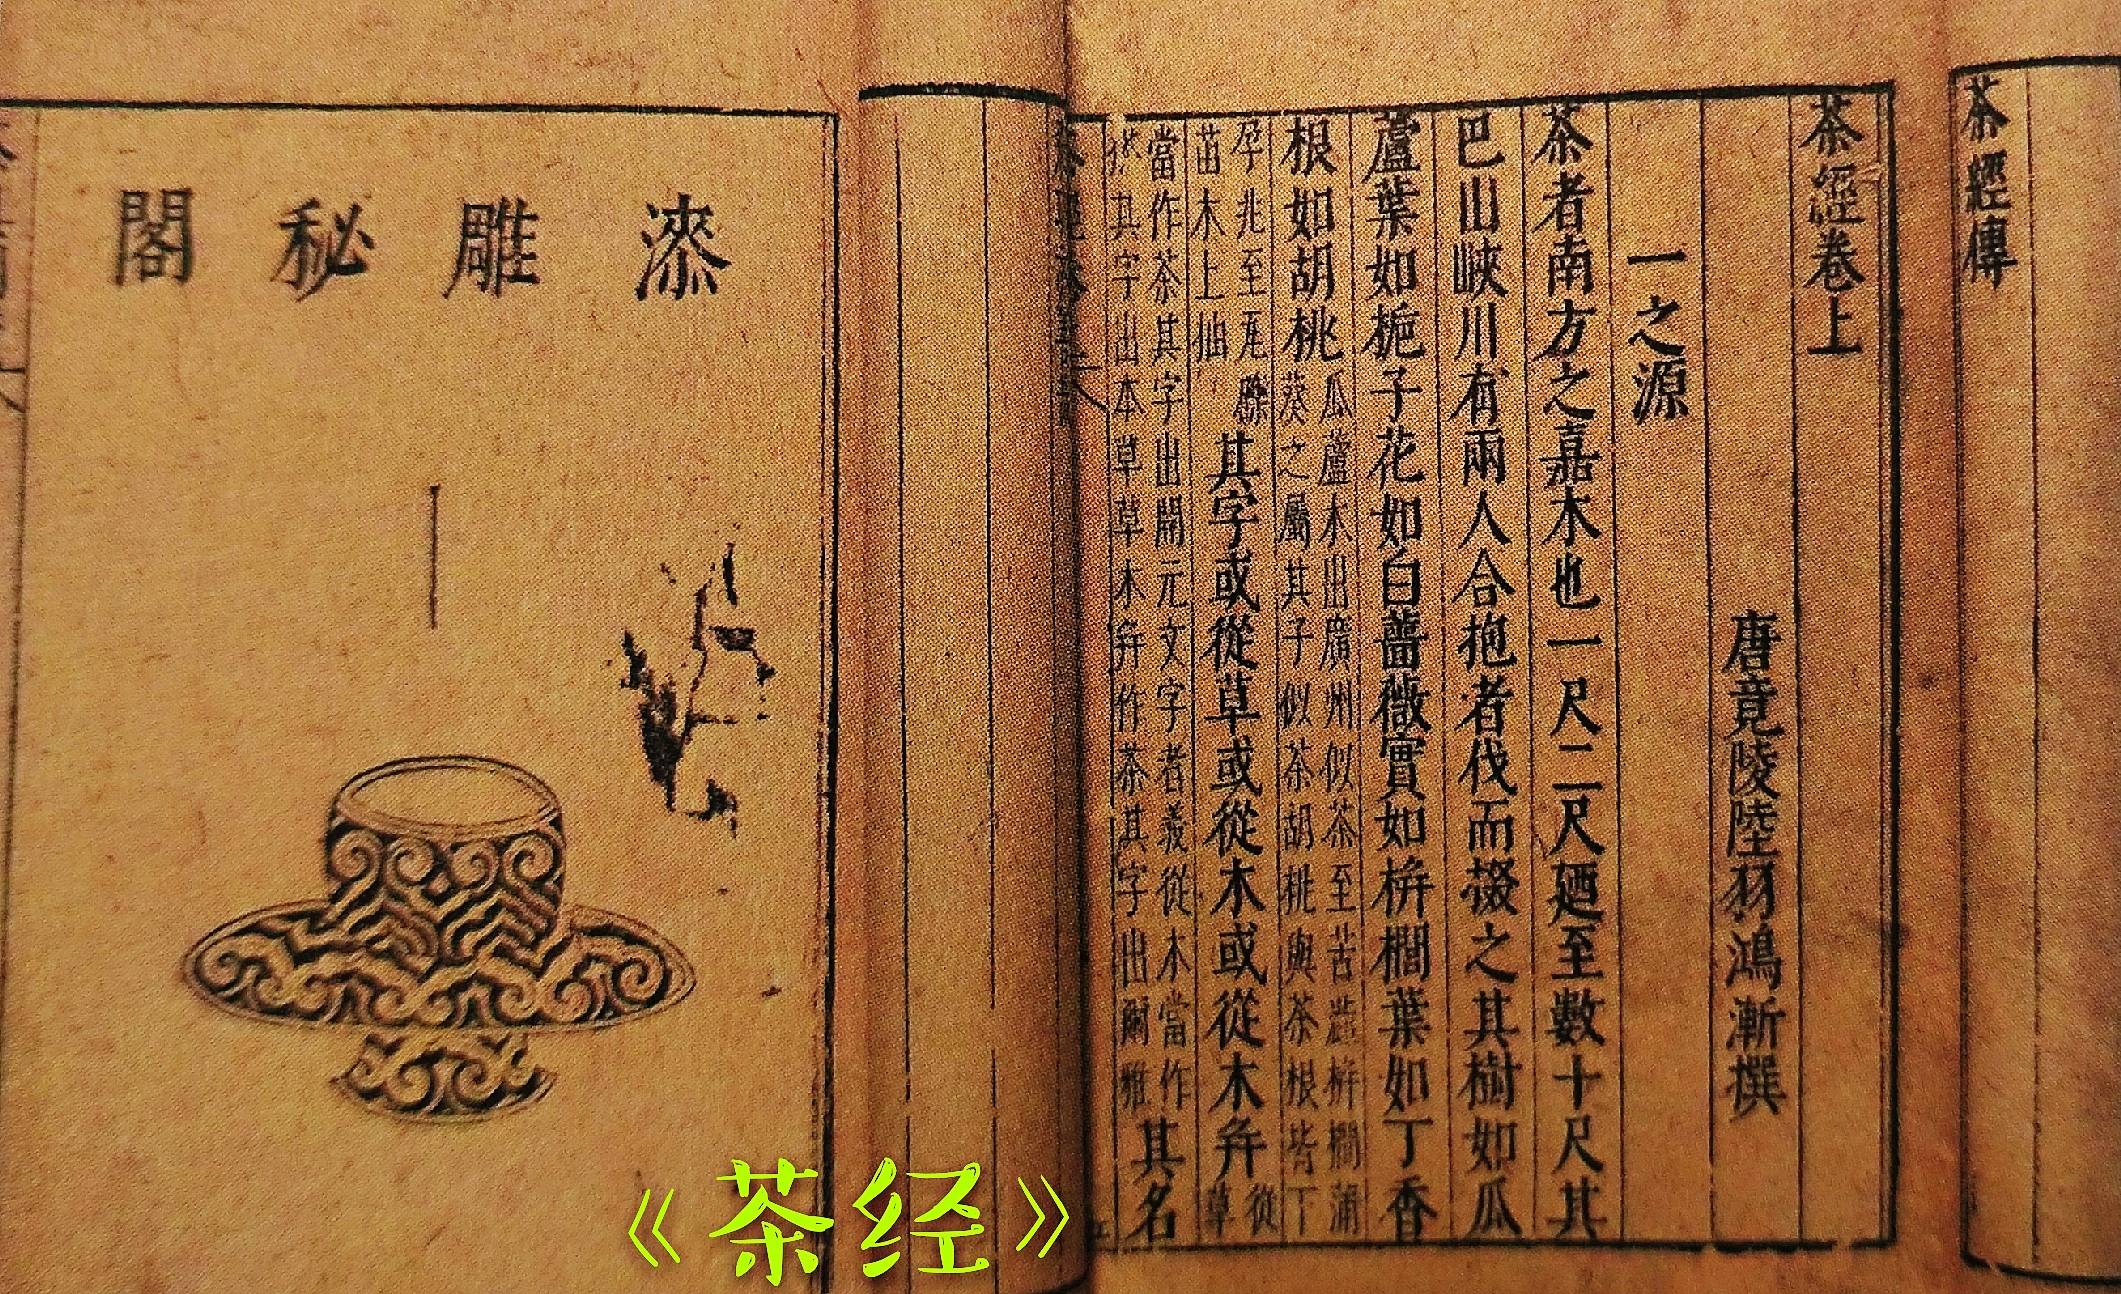 茶經傳
茶經卷上
唐竟陵陸羽鴻漸撰
一之源
茶者南方之嘉木也一尺二尺廼至數十尺其
巴山峽川有兩人合抱者伐而掇之其樹如瓜
蘆葉如梔子花如白薔薇實如栟櫚葉如丁香
根如胡桃
瓜蘆木出廣州似茶至苦澁栟櫚蒲
葵之屬其子似茶胡桃與茶根皆下
孕兆至瓦礫
苗木上抽
其字或從草或從木或從木并
從
草
當作茶其字出開元文字者義從木當作
其字出本草草木并作茶其字出爾雅
其名
漆雕秘閣
《茶经》